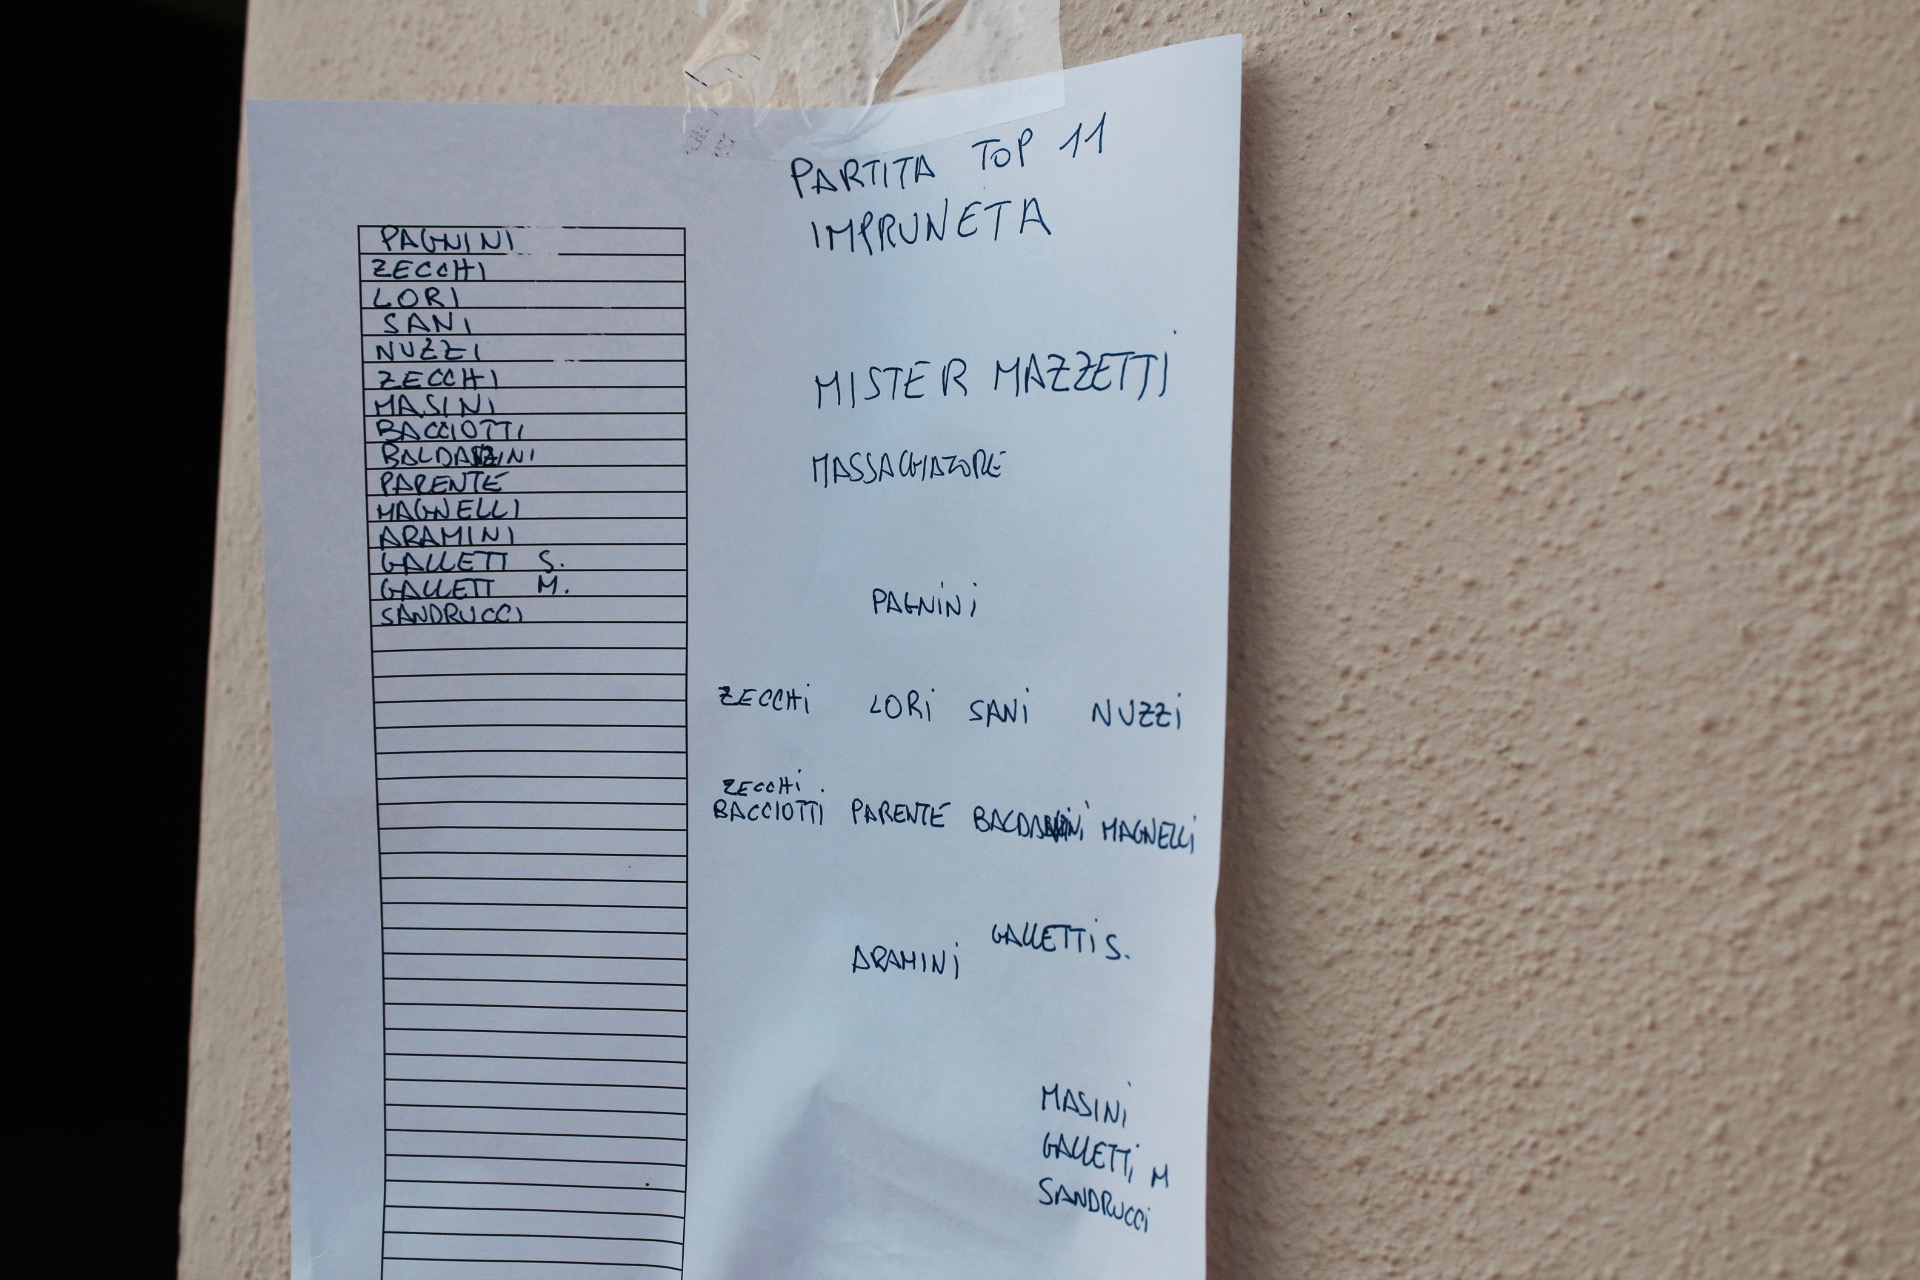 PARTITA TOP 11
IMPRUNETA
PAGNINI
ZECCHI
LORI
SANI
NUZZI
ZECCHI
MASINI
BACCIOTTI
PARENTE
MAGNELLI
ARAMINI
GALLETTI S.
GALLETT M.
SANDRUCCI
MISTER MAZZETTI
PAGNINI
ZECCHI LORI SANI NUZZI
ZECCHI
BACCIOTTI PARENTE MAGNELLI
ARAMINI GALLETTI S.
MASINI
GALLETTI M
SANDRUCCI